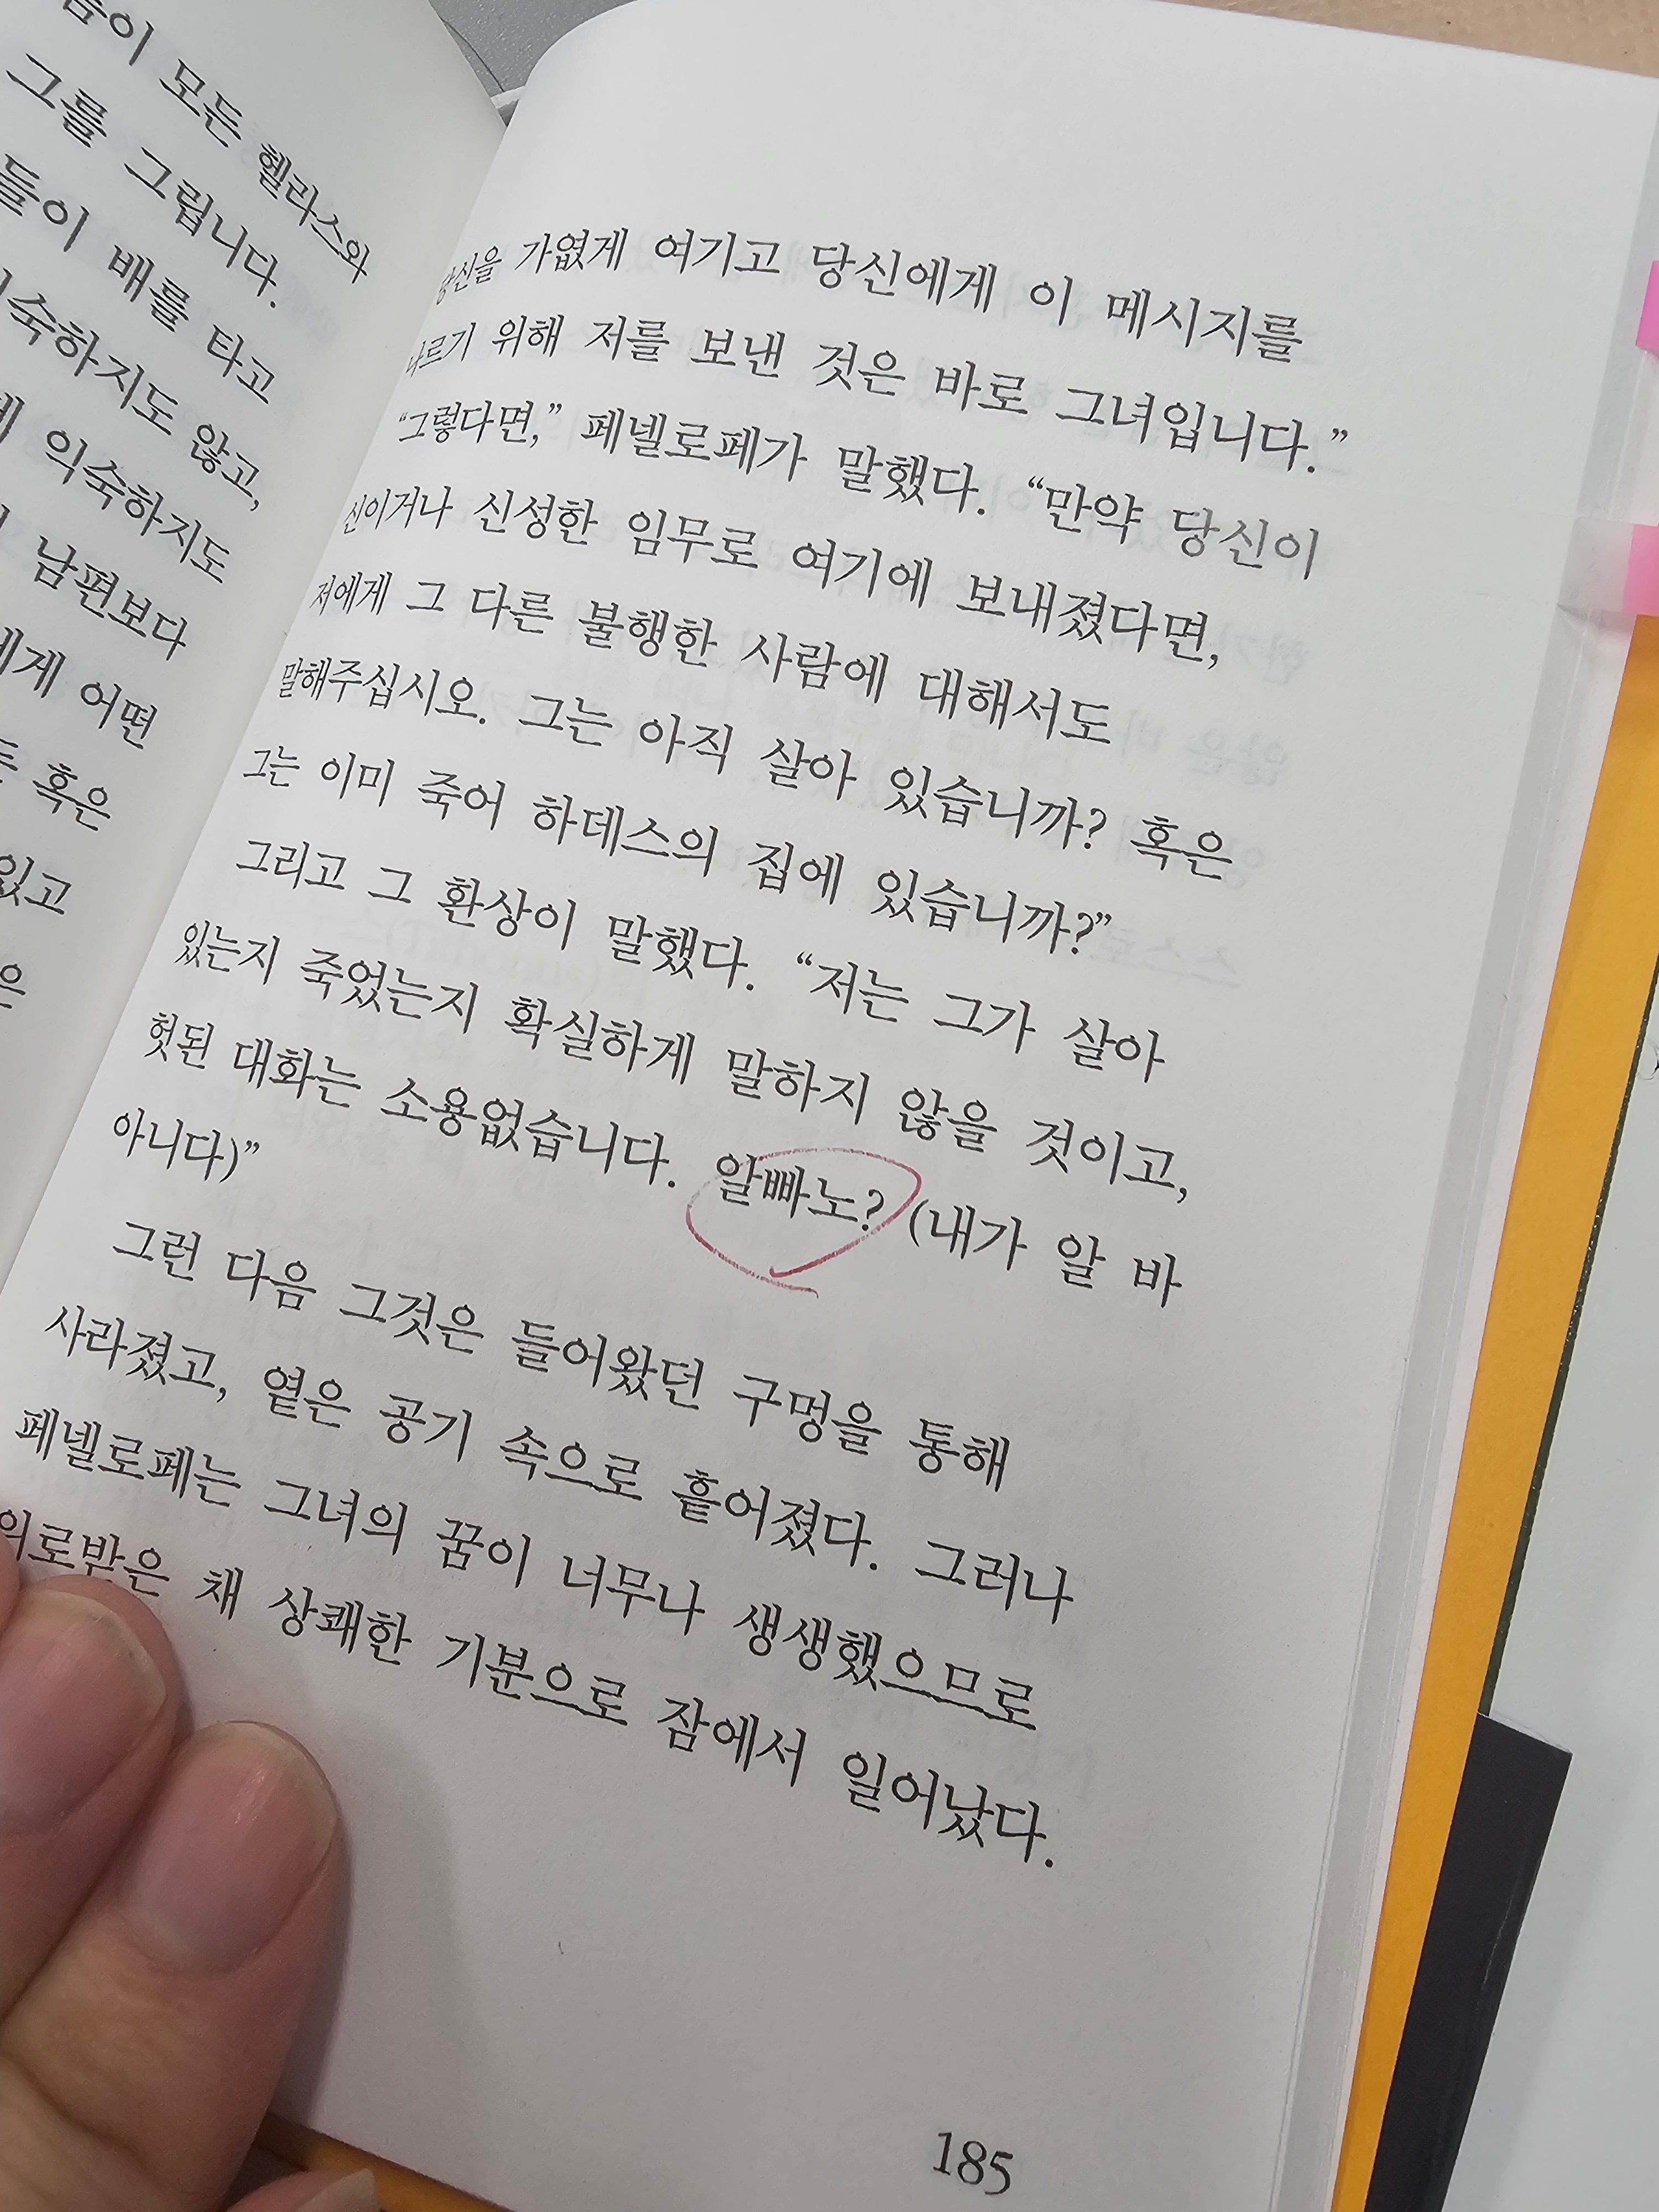 모든 헬라스와
그를 그립니다.
들이 배를 타고
숙하지도 않고,
익숙하지도
남편보다
에게 어떤
혹은
있고
은
당신을 가엾게 여기고 당신에게 이 메시지를
나르기 위해 저를 보낸 것은 바로 그녀입니다.”
“그렇다면,” 페넬로페가 말했다. “만약 당신이
신이거나 신성한 임무로 여기에 보내졌다면,
저에게 그 다른 불행한 사람에 대해서도
말해주십시오. 그는 아직 살아 있습니까? 혹은
그는 이미 죽어 하데스의 집에 있습니까?”
그리고 그 환상이 말했다. “저는 그가 살아
있는지 죽었는지 확실하게 말하지 않을 것이고,
헛된 대화는 소용없습니다. 알빠노? (내가 알 바
아니다)”
그런 다음 그것은 들어왔던 구멍을 통해
사라졌고, 옅은 공기 속으로 흩어졌다. 그러나
페넬로페는 그녀의 꿈이 너무나 생생했으므로
위로받은 채 상쾌한 기분으로 잠에서 일어났다.
185